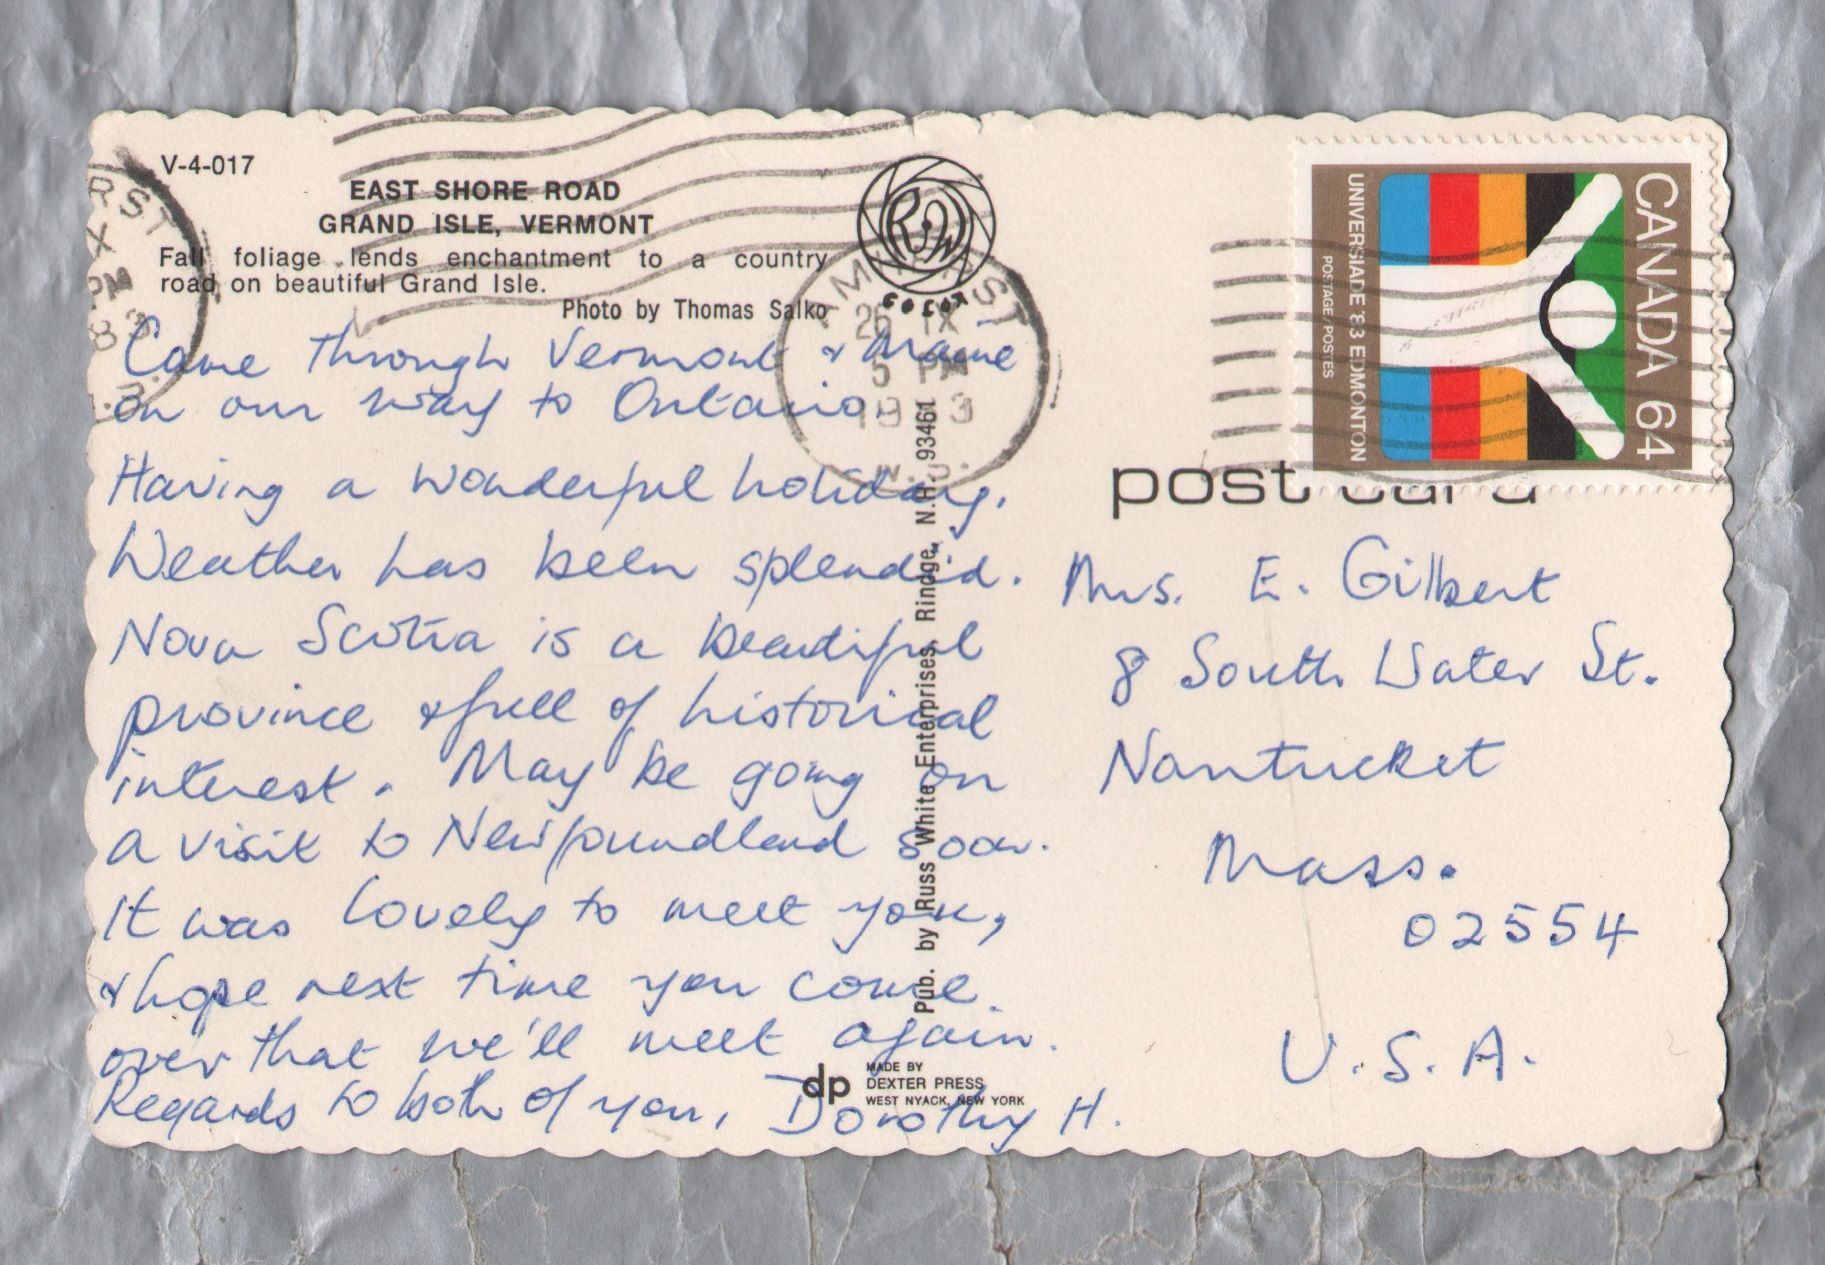 V-4-017
EAST SHORE ROAD
GRAND ISLE, VERMONT
Fall foliage lends enchantment to a country
road on beautiful Grand Isle.
Photo by Thomas Salko
Came through Vermont & Maine
on our way to Ontario.
Having a wonderful holiday.
Weather has been splendid.
Nova Scotia is a beautiful
province & full of historical
interest. May be going on
a visit to Newfoundland soon.
It was lovely to meet you,
& hope next time you come
over that we'll meet again.
Regards to both of you, Dorothy H.
RST
X
PM
83
AMHERST
26 IX
5 PM
1983
N.S.
ROW
COLOR
Pub. by Russ White Enterprises, Rindge, N.H. 93461
dp
MADE BY
DEXTER PRESS
WEST NYACK, NEW YORK
CANADA 64
UNIVERSIADE '83 EDMONTON
POSTAGE POSTES
post card
Mrs. E. Gilbert
8 South Water St.
Nantucket
Mass.
02554
U.S.A.